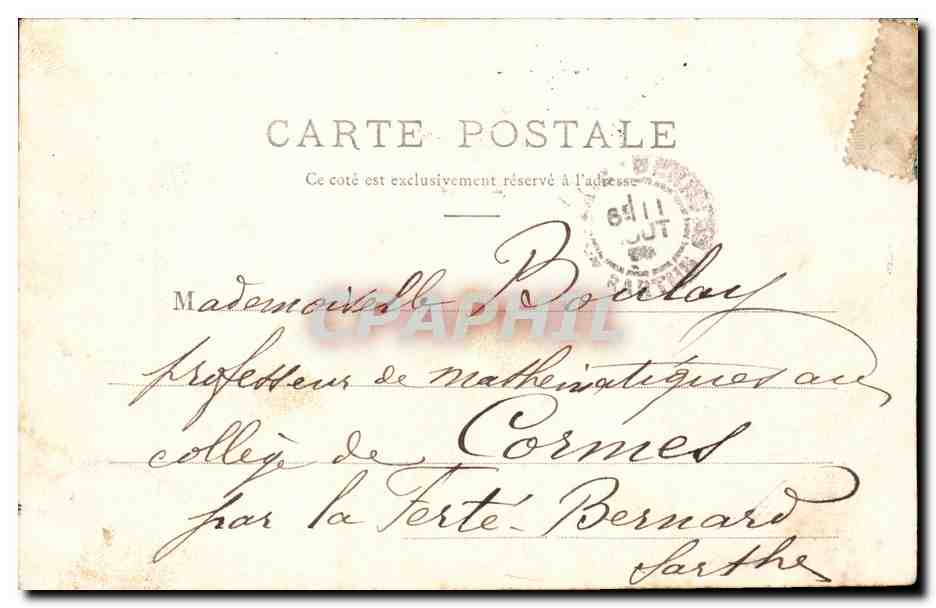 CARTE POSTALE
Ce coté est exclusivement réservé à l'adresse
11
OUT
SARTHE
Mademoiselle Boulay
CPAPHIL
professeur de mathématiques au
collège de Cormes
par la Ferté-Bernard
Sarthe